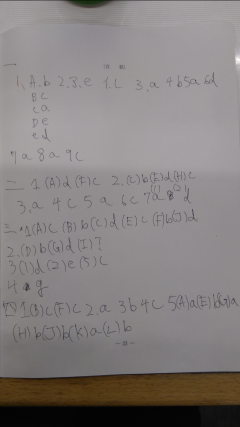 一
1. A. b 2. 3. e 1. c 3. a 4 b 5 a 6 d
B c
C a
D e
E d
7 a 8 a 9 c
二 1 (A) d (F) c 2. (C) b (E) d (H) c
3. a 4 c 5 a 6 c 7 (1) a 8 (2) d
三. 1 (A) c (B) b (C) d (E) c (F) b (J) d
2. (D) b (G) d (I) ?
3 (1) d (2) e (5) c
4 g
四 1 (B) c (F) c 2. a 3 b 4 c 5 (A) a (E) b (G) a
(H) b (J) b (K) a (L) b